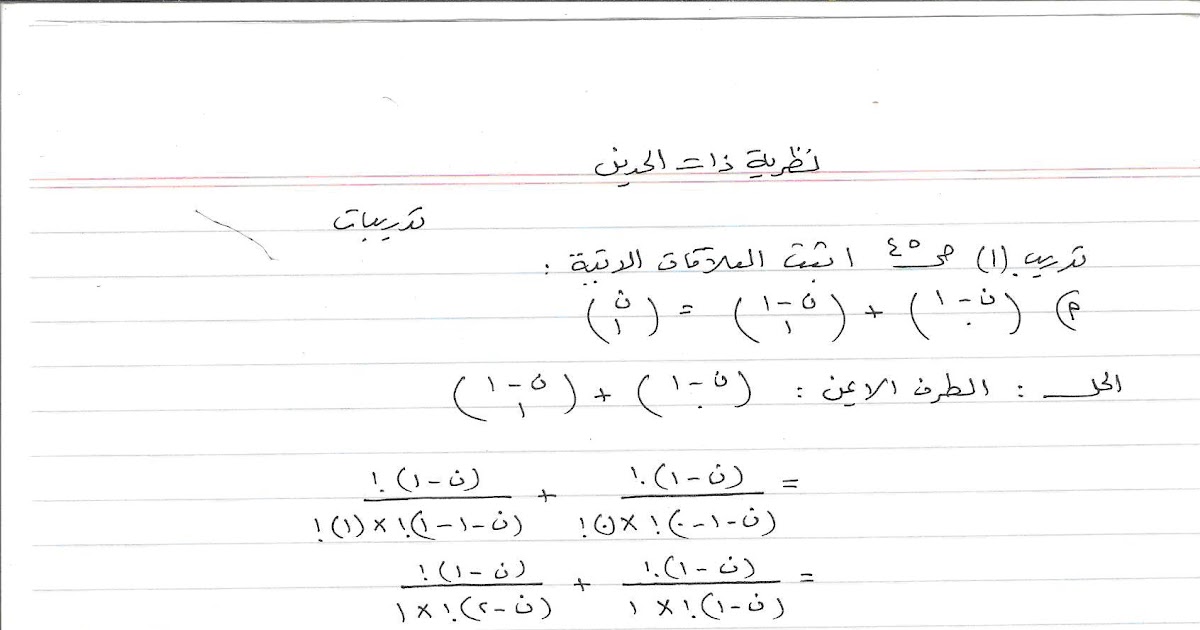 نظرية ذات الحدين
تدريبات
تدريب (١) صـ ٤٥ اثبت العلاقات الاتية :
م) (ن - ١ / ٠) + (ن - ١ / ١) = (ن / ١)
الحل : الطرف الايمن : (ن - ١ / ٠) + (ن - ١ / ١)
= (ن - ١)! / (ن - ١ - ٠)! × (٠)! + (ن - ١)! / (ن - ١ - ١)! × (١)!
= (ن - ١)! / (ن - ١)! × ١ + (ن - ١)! / (ن - ٢)! × ١